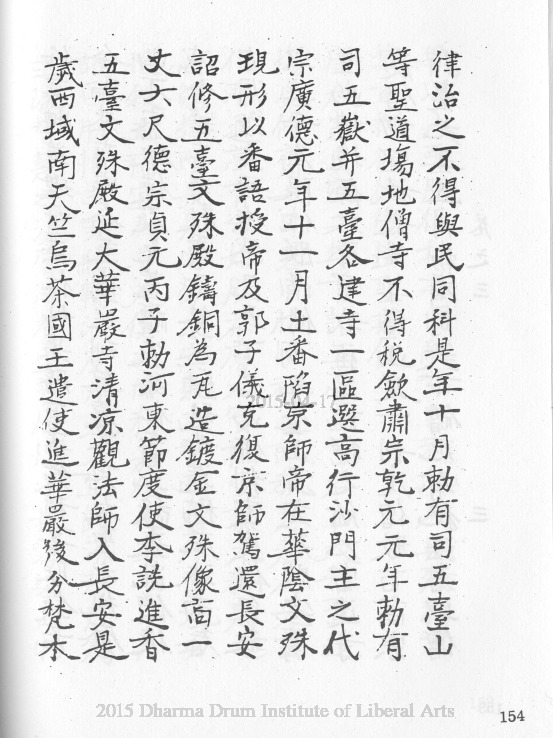 律治之不得與民同科是年十月勅有司五臺山
等聖道塲地僧寺不得稅歛肅宗乾元元年勅有
司五嶽并五臺各建寺一區選高行沙門主之代
宗廣德元年十一月土番陷京師帝在華陰文殊
現形以番語授帝及郭子儀克復京師駕還長安
詔修五臺文殊殿鑄銅為瓦造鍍金文殊像高一
丈六尺德宗貞元丙子勅河東節度使李詵進香
五臺文殊殿延大華嚴寺清凉觀法師入長安是
歲西域南天竺烏茶國王遣使進華嚴後分梵本
2015-04-17
2015 Dharma Drum Institute of Liberal Arts
154